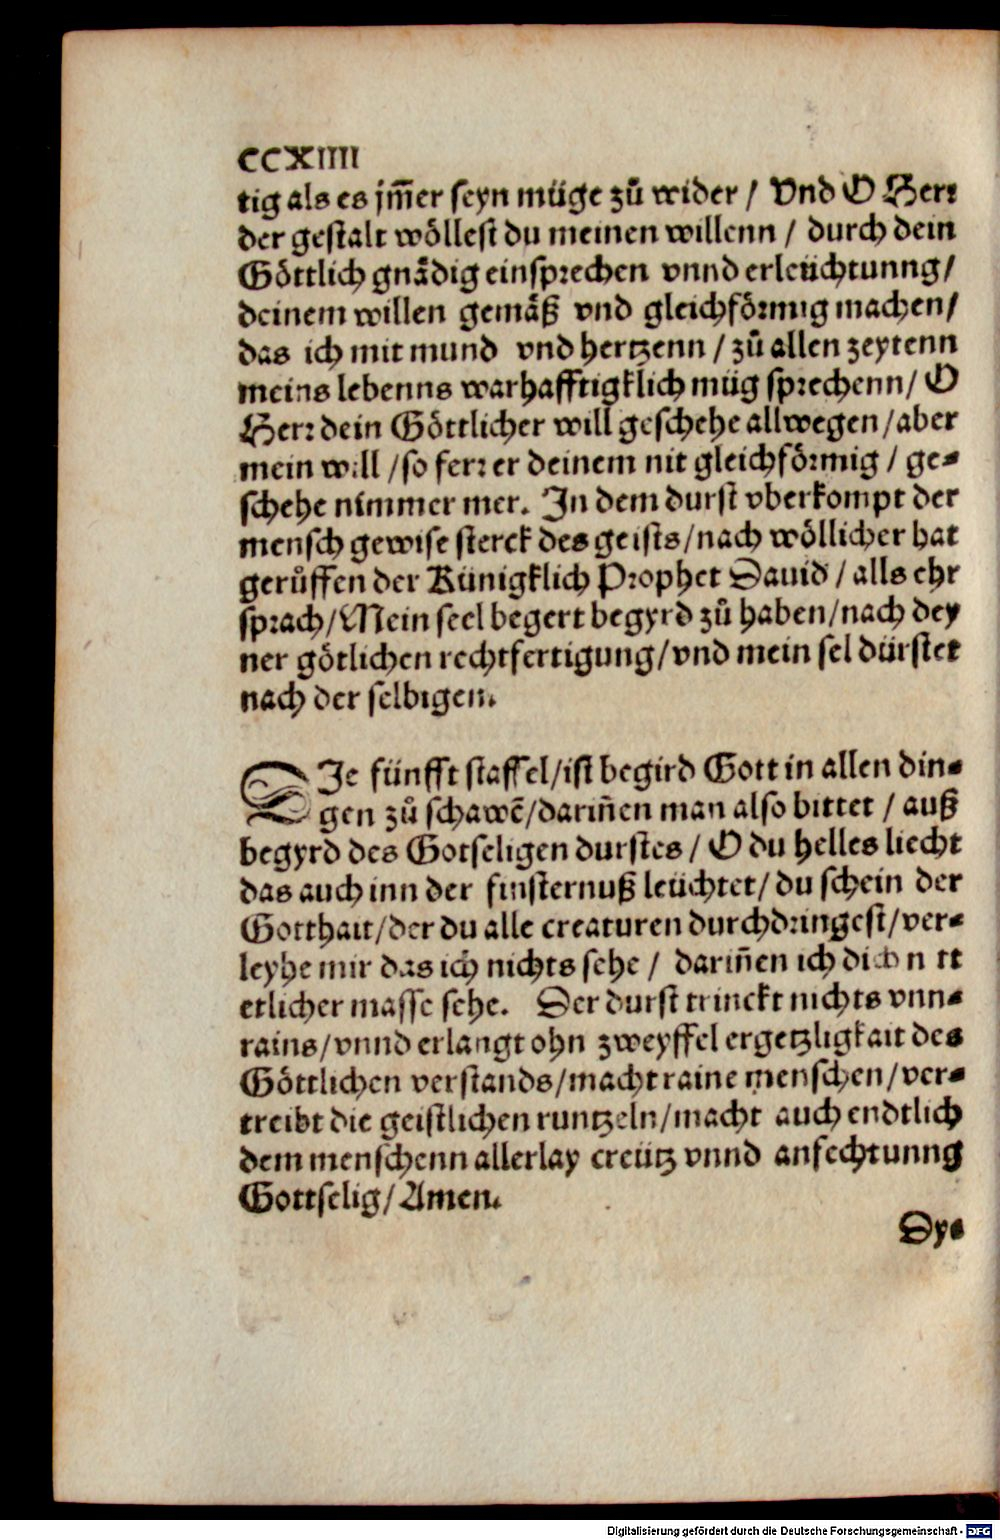 CCXIIII
tig als es jm̃er seyn müge zů wider / Vnd O Herr
der gestalt wöllest du meinen willenn / durch dein
Göttlich gnådig einsprechen vnnd erleüchtunng/
deinem willen gemåß vnd gleichförmig machen/
das ich mit mund vnd hertzenn / zů allen zeytenn
meins lebenns warhafftigklich müg sprechenn/ O
Herr dein Göttlicher will geschehe allwegen /aber
mein will /so ferr er deinem nit gleichförmig / ge-
schehe nimmer mer. In dem durst vberkompt der
mensch gewise sterck des geists/nach wöllicher hat
gerůffen der Künigklich Prophet Dauid / alls ehr
sprach/Mein seel begert begyrd zů haben/nach dey
ner götlichen rechtfertigung/vnd mein sel dürstet
nach der selbigen.
DIe fünfft staffel/ist begird Gott in allen din-
gen zů schawẽ/dariñen man also bittet / auß
begyrd des Gotseligen durstes / O du helles liecht
das auch inn der finsternuß leüchtet/ du schein der
Gotthait/der du alle creaturen durchdringest/ver-
leyhe mir das ich nichts sehe / dariñen ich dich n tt
etlicher masse sehe. Der durst trinckt nichts vnn-
rains/vnnd erlangt ohn zweyffel ergetzligkait des
Göttlichen verstands/macht raine menschen/ver-
treibt die geistlichen runtzeln/macht auch endtlich
dem menschenn allerlay creütz vnnd anfechtunng
Gottselig/Amen.
Dy-
Digitalisierung gefördert durch die Deutsche Forschungsgemeinschaft - DFG